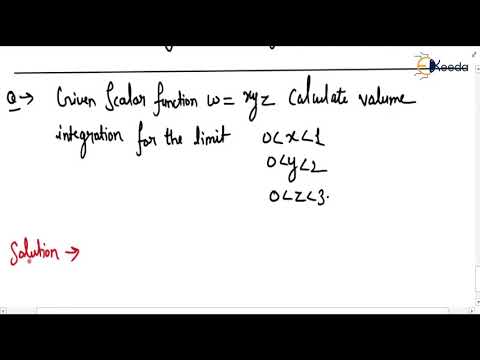 Keeda
Q → Given Scalar function w = xyz Calculate valume
integration for the limit 0<x<1
0<y<2
0<z<3.
Solution →